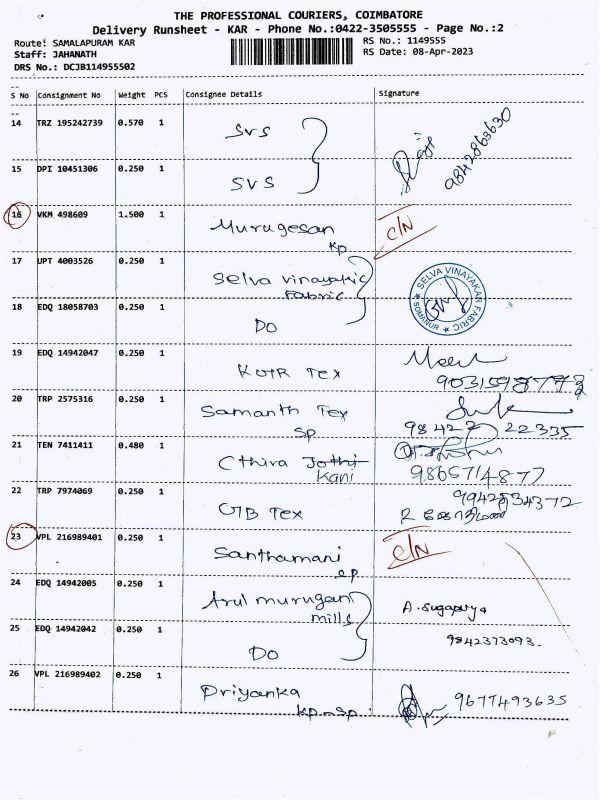 THE PROFESSIONAL COURIERS, COIMBATORE
Delivery Runsheet - KAR - Phone No.:0422-3505555 - Page No.:2
Route: SAMALAPURAM KAR
RS No.: 1149555
Staff: JAHANATH
RS Date: 08-Apr-2023
DRS No.: DCJB114955502
S No Consignment No Weight PCS Consignee Details Signature
14 TRZ 195242739 0.570 1 SVS
9842863630
15 DPI 10451306 0.250 1 SVS
16 VKM 498609 1.500 1 Murugesan C/N
KP
17 UPT 4003526 0.250 1 Selva vinayakic
Fabric
SELVA VINAYAKAR FABRIC
SOMANUR
18 EDQ 18058703 0.250 1 DO
19 EDQ 14942047 0.250 1 Tex
20 TRP 2575316 0.250 1 Samanth Tex
SP 98422 22335
21 TEN 7411411 0.480 1 Cthira Jothi
Kani 9865714877
22 TRP 7974069 0.250 1 GTB Tex
9942834372
23 VPL 216989401 0.250 1 Santhamani C/N
SP
24 EDQ 14942005 0.250 1 Arul murugan A. Sugapriya
mills
25 EDQ 14942042 0.250 1 DO 9842373093.
26 VPL 216989402 0.250 1 Priyanka 9677493635
KP-SP.